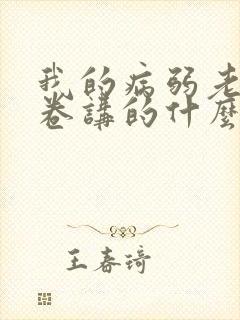 我的病弱老
卷講的什麼
王春琦